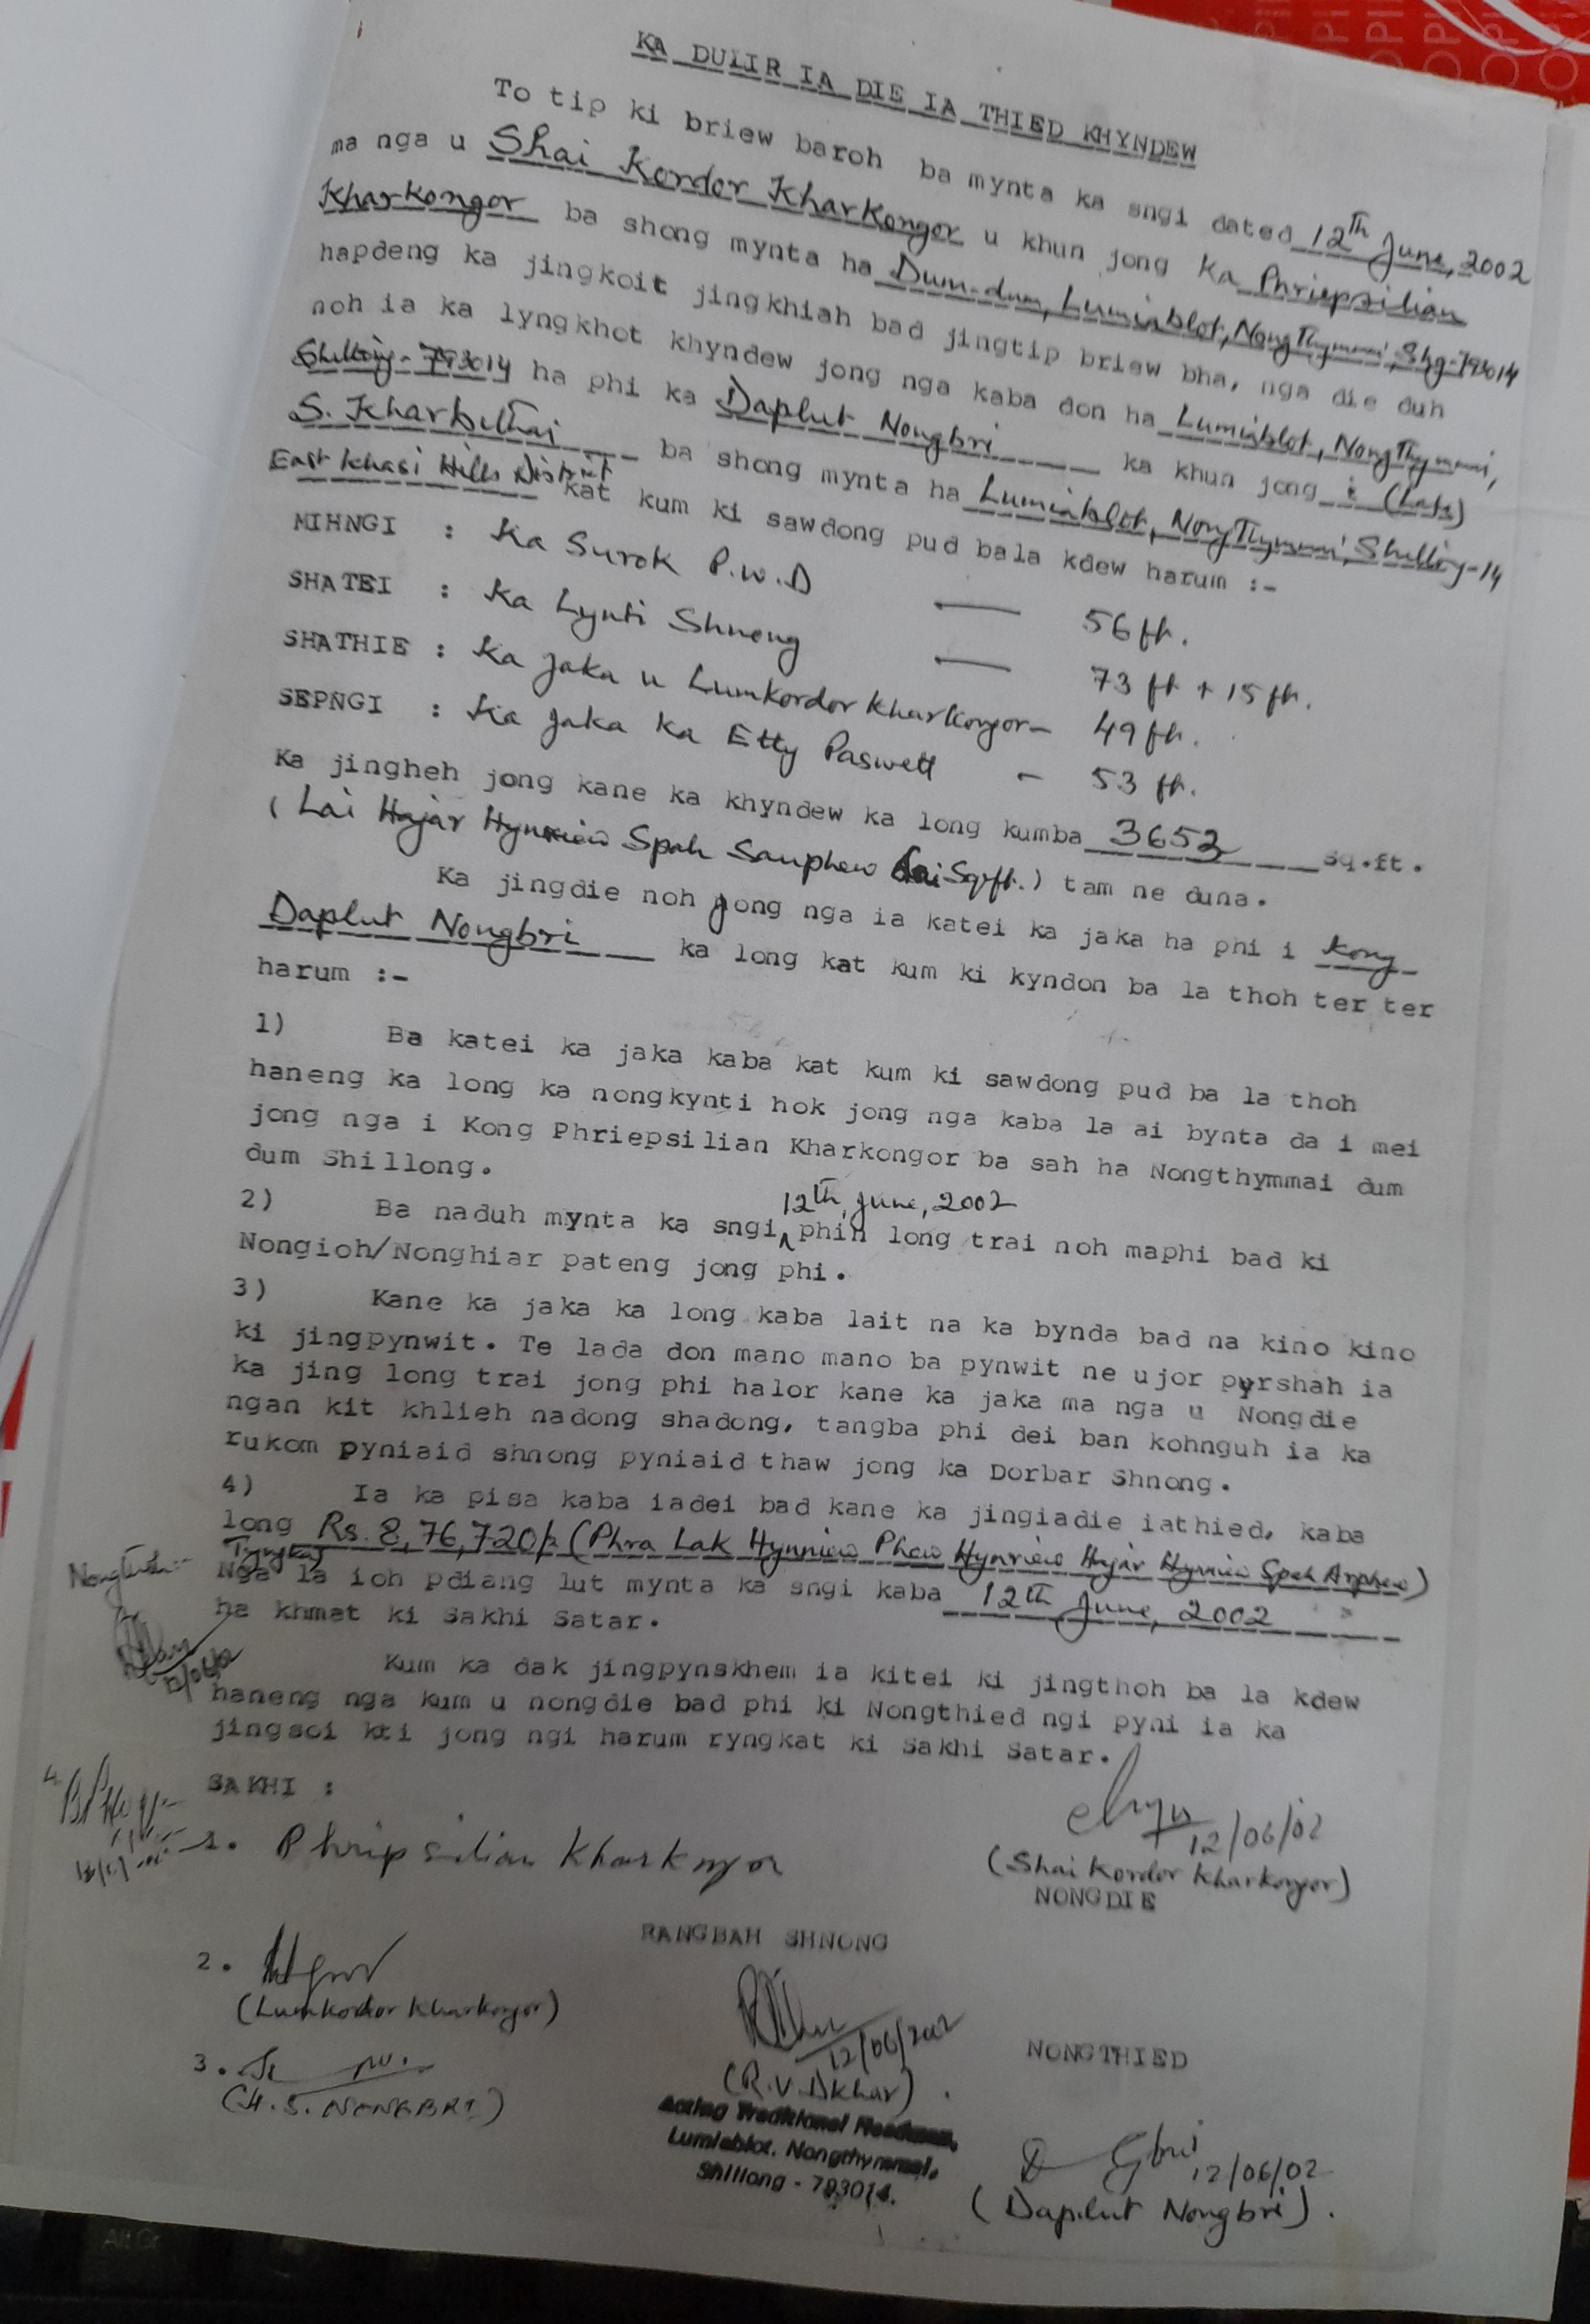 KA DULIR IA DIE IA THIED KHYNDEW
To tip ki briew baroh ba mynta ka sngi dated 12th June, 2002
ma nga u Shai Kordor Kharkongor u khun jong ka Phriepsilian
Kharkongor ba shong mynta ha Dum-dum, Lumiablot, NongThymmai, Shg-793014
hapdeng ka jingkoit jingkhiah bad jingtip briew bha, nga die duh
noh ia ka lyngkhot khyndew jong nga kaba don ha Lumiablot, NongThymmai,
Shillong-793014 ha phi ka Daplut Nongbri ka khun jong i (Late)
S. Kharbithai ba shong mynta ha Lumiablot, NongThymmai, Shillong-14
East Khasi Hills District kat kum ki sawdong pud bala kdew harum :-
MIHNGI : Ka Surok P.W.D — 56 ft.
SHATEI : Ka Lynti Shnong — 73 ft + 15 ft.
SHATHIE : Ka Jaka u Lumkordor Kharkongor - 49 ft.
SEPNGI : Ka Jaka ka Etty Paswett - 53 ft.
Ka jingheh jong kane ka khyndew ka long kumba 3653 sq.ft.
(Lai Hajar Hynriew Spah Sanphew Lai Sq.ft.) tam ne duna.
Ka jingdie noh jong nga ia katei ka jaka ha phi i Kong
Daplut Nongbri ka long kat kum ki kyndon ba la thoh ter ter
harum :-
1) Ba katei ka jaka kaba kat kum ki sawdong pud ba la thoh
haneng ka long ka nongkynti hok jong nga kaba la ai bynta da i mei
jong nga i Kong Phriepsilian Kharkongor ba sah ha Nongthymmai dum
dum Shillong.
12th, June, 2002
2) Ba naduh mynta ka sngi phin long trai noh maphi bad ki
Nongioh/Nonghiar pateng jong phi.
3) Kane ka jaka ka long kaba lait na ka bynda bad na kino kino
ki jingpynwit. Te lada don mano mano ba pynwit ne ujor pyrshah ia
ka jing long trai jong phi halor kane ka jaka ma nga u Nongdie
ngan kit khlieh nadong shadong, tangba phi dei ban kohnguh ia ka
rukom pyniaid shnong pyniaid thaw jong ka Dorbar Shnong.
4) Ia ka pisa kaba iadei bad kane ka jingiadie iathied, kaba
long Rs. 8,76,720/- (Phra Lak Hynniew Phew Hynriew Hajar Hynniew Spah Arphew)
Tyngka)
Nga la ioh pdiang lut mynta ka sngi kaba 12th June, 2002
ha khmat ki Sakhi Satar.
Kum ka dak jingpynskhem ia kitei ki jingthoh ba la kdew
haneng nga kum u nongdie bad phi ki Nongthied ngi pyni ia ka
jingsoi kti jong ngi harum ryngkat ki Sakhi Satar.
SAKHI :
12/06/02
1. Phripsilian Kharkongor
(Shai Kordor Kharkongor)
NONGDIE
RANGBAH SHNONG
2.
(Lumkordor Kharkongor)
12/06/2002
NONGTHIED
3.
(H.S. NONGBRI)
(R.V. Dkhar)
Acting Traditional Headman,
Lumiablot, Nongthymmai,
Shillong - 793014.
12/06/02
(Daplut Nongbri).
4.